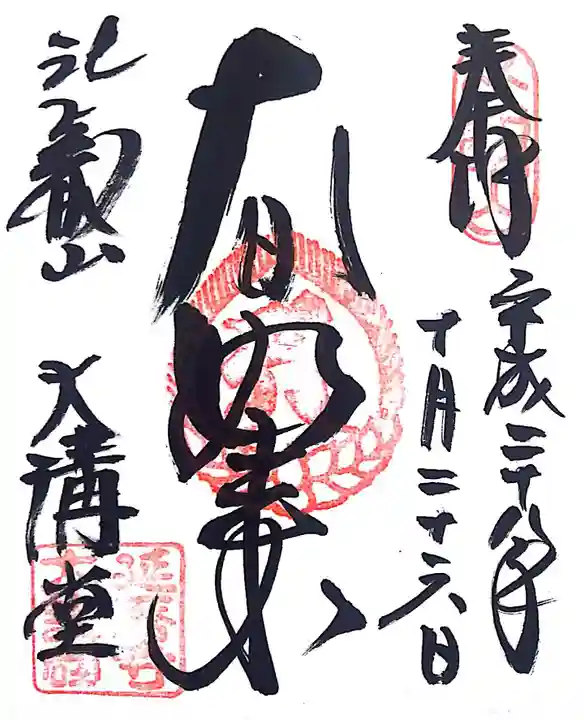 奉拝
平成二十八年
十月二十六日
大日如来
比叡山
大講堂
延暦寺